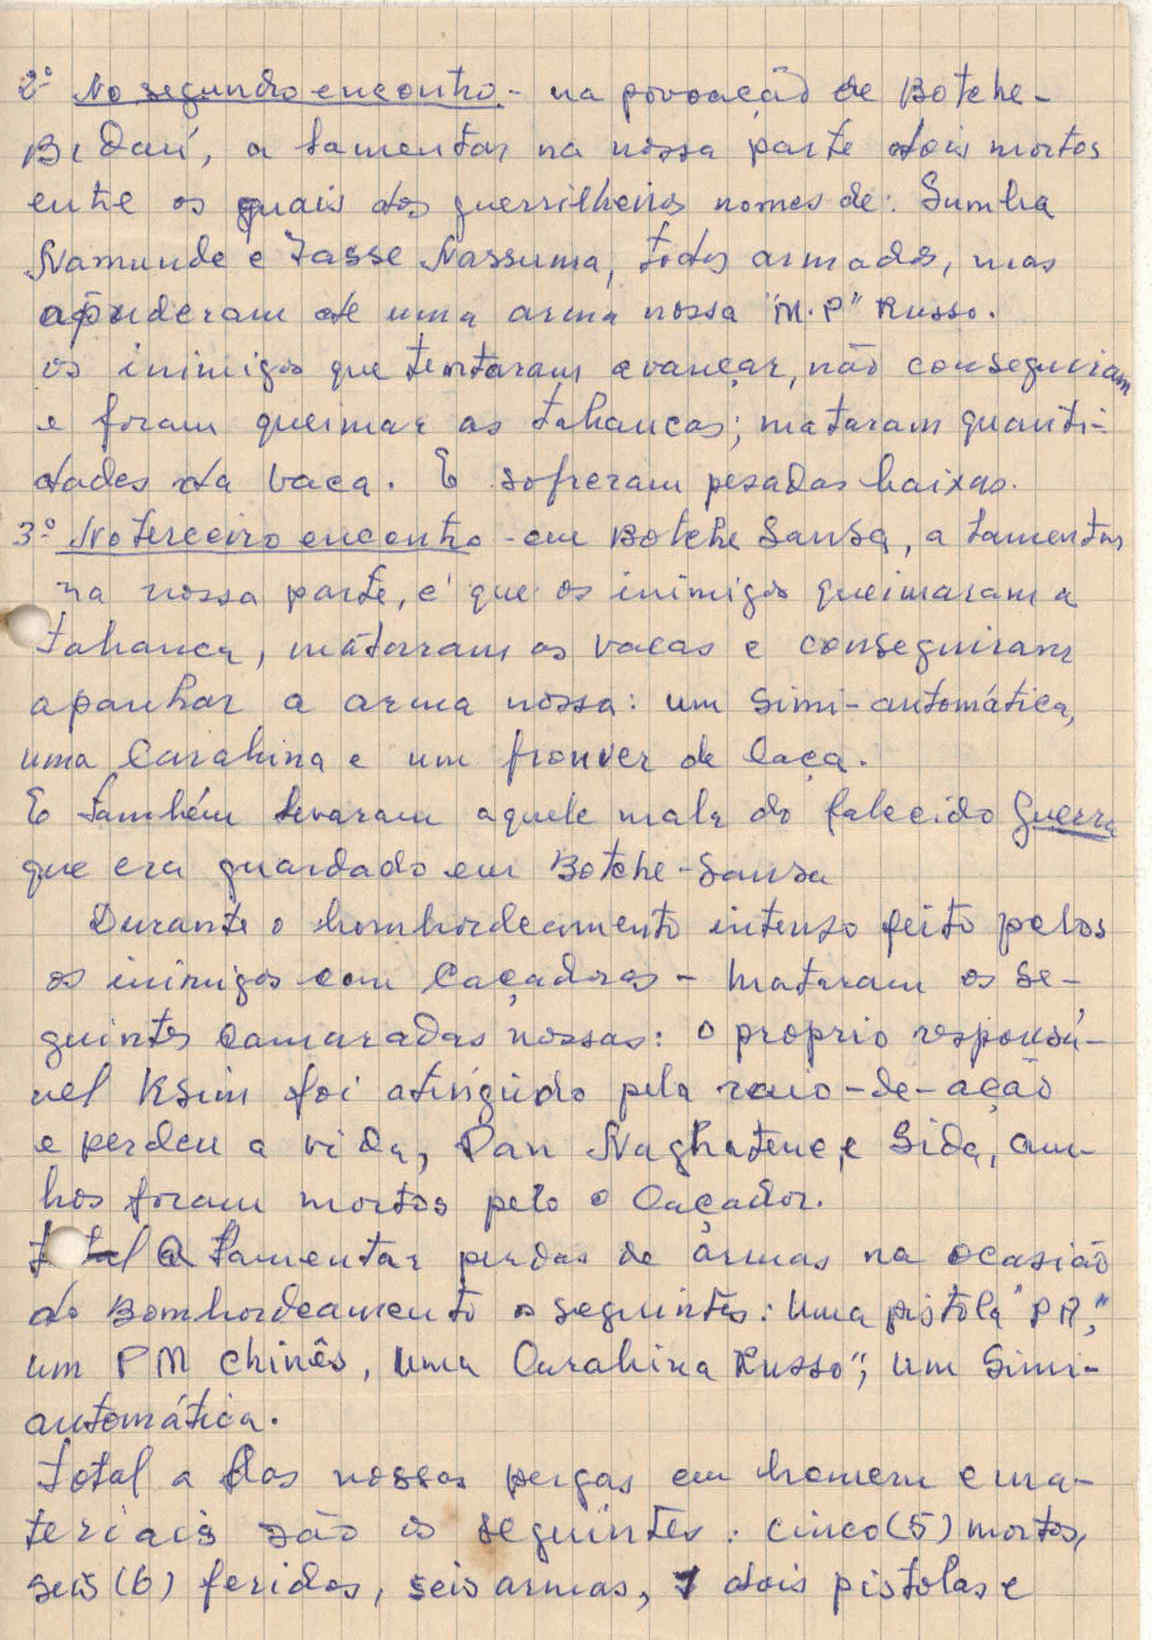 2º No segundo encontro - na povoação de Botche-
Bidaní, a lamentar na nossa parte dois mortos
entre os quais dos guerrilheiros nomes de: Sumba
Namunde e Iasse Nassuma, todos armados, mas
apuderam de uma arma nossa "M.P" Russo.
os inimigos que tentaram avançar, não conseguiram
e foram queimar as tabancas; mataram quanti-
dades da vaca. E sofreram pesadas baixas.
3º No terceiro encontro - em Botche Sansa, a lamentar
na nossa parte, é que os inimigos queimaram a
tabanca, mataram as vacas e conseguiram
apanhar a arma nossa: um Simi-automática,
uma Carabina e um frouver de Caça.
E também levaram aquele mala do falecido Guerra
que era guardado em Botche-Sansa
Durante o bombordeamento intenso feito pelos
os inimigos com Caçadores - mataram os se-
guintes Camaradas nossas: o proprio responsá-
vel Ksim foi atingido pela raio-de-ação
e perdeu a vida, Dan e Sida, am-
bos foram mortos pelo o Caçador.
total a lamentar perdas de armas na ocasião
do Bombordeamento o seguintes: Uma pistola "PM",
um PM Chinês, Uma Carabina Russo", um Simi-
automática.
total a das nossas pergas em homem e ma-
teriais são os seguintes: cinco (5) mortos,
seis (6) feridos, seis armas, dois pistolas e